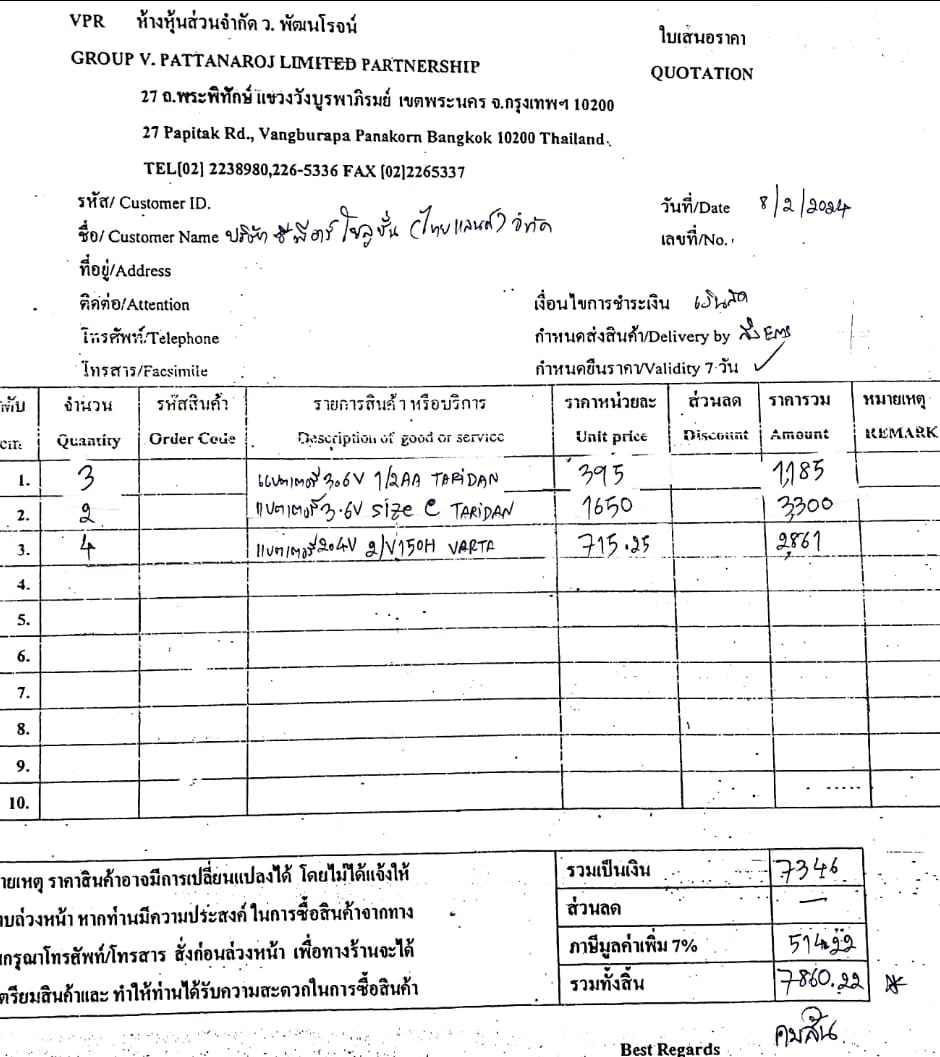 VPR ห้างหุ้นส่วนจำกัด ว. พัฒนโรจน์
ใบเสนอราคา
GROUP V. PATTANAROJ LIMITED PARTNERSHIP
QUOTATION
27 ถ.พระพิทักษ์ แขวงวังบูรพาภิรมย์ เขตพระนคร จ.กรุงเทพฯ 10200
27 Papitak Rd., Vangburapa Panakorn Bangkok 10200 Thailand.
TEL[02] 2238980,226-5336 FAX [02]2265337
รหัส/ Customer ID.
วันที่/Date 8/2/2024
ชื่อ/ Customer Name บริษัท ซีพีอาร์ โซลูชั่น (ไทยแลนด์) จำกัด
เลขที่/No.
ที่อยู่/Address
ติดต่อ/Attention
เงื่อนไขการชำระเงิน เงินสด
โทรศัพท์/Telephone
กำหนดส่งสินค้า/Delivery by ส่ง EMS
โทรสาร/Facsimile
กำหนดยืนราคา/Validity 7 วัน ✓
จำนวน รหัสสินค้า รายการสินค้า หรือบริการ ราคาหน่วยละ ส่วนลด ราคารวม หมายเหตุ
Quantity Order Code Description of good or service Unit price Discount Amount REMARK
1. 3 แบตเตอรี่ 3.6V 1/2AA TARIDAN 395 1,185
2. 2 แบตเตอรี่ 3.6V size C TARIDAN 1650 3,300
3. 4 แบตเตอรี่ 2.4V 2/V150H VARTA 715.25 2,861
4.
5.
6.
7.
8.
9.
10.
ายเหตุ ราคาสินค้าอาจมีการเปลี่ยนแปลงได้ โดยไม่ได้แจ้งให้
รวมเป็นเงิน 7346
าบล่วงหน้า หากท่านมีความประสงค์ ในการซื้อสินค้าจากทาง
ส่วนลด —
กรุณาโทรสัพท์/โทรสาร สั่งก่อนล่วงหน้า เพื่อทางร้านจะได้
ภาษีมูลค่าเพิ่ม 7% 514.22
ตรียมสินค้าและ ทำให้ท่านได้รับความสะดวกในการซื้อสินค้า
รวมทั้งสิ้น 7860.22
คมสัน
Best Regards